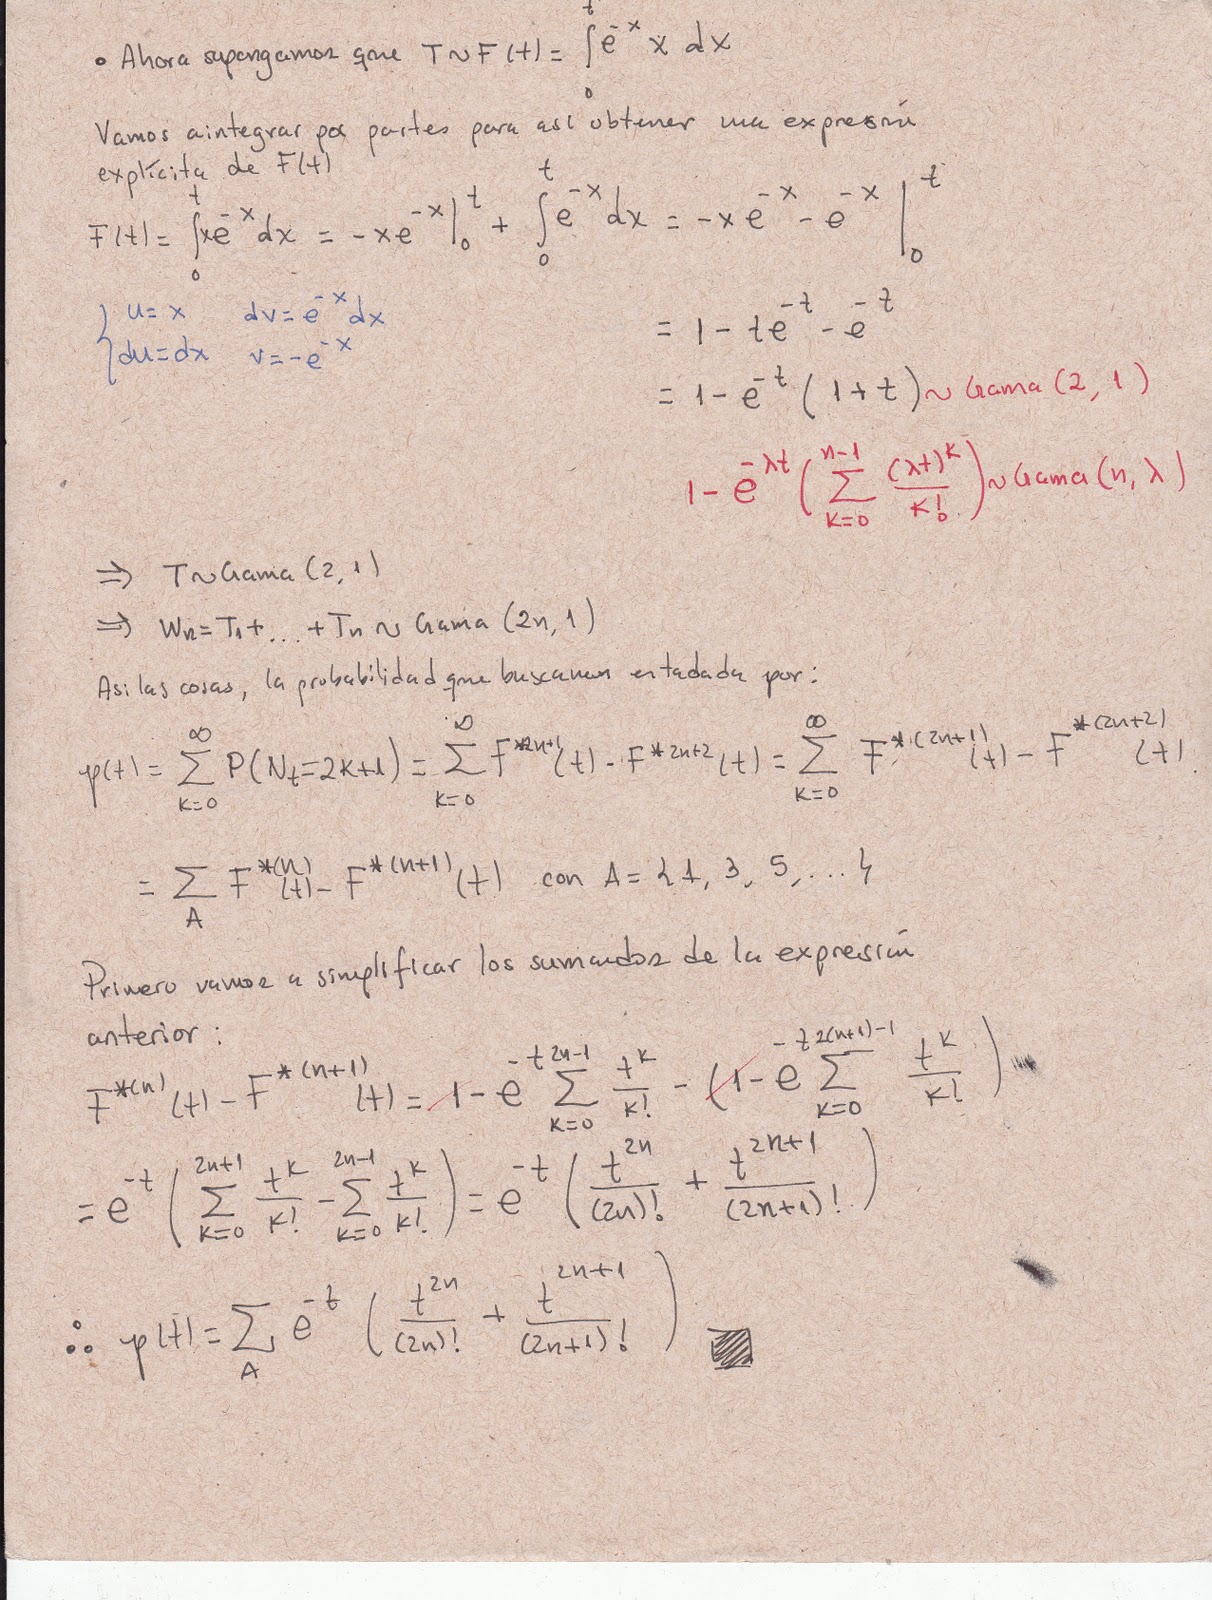 • Ahora supongamos que T ~ F(t) = ∫₀ᵗ e^{-x} x dx
Vamos a integrar por partes para así obtener una expresión
explícita de F(t)
F(t) = ∫₀ᵗ xe^{-x} dx = -xe^{-x} |₀ᵗ + ∫₀ᵗ e^{-x} dx = -xe^{-x} - e^{-x} |₀ᵗ
{ u = x dv = e^{-x} dx
du = dx v = -e^{-x}
= 1 - te^{-t} - e^{-t}
= 1 - e^{-t} (1 + t) ~ Gama (2, 1)
1 - e^{-λt} ( ∑_{k=0}^{n-1} (λt)^k / k! ) ~ Gama (n, λ)
⇒ T ~ Gama (2, 1)
⇒ Wn = T₁ + ... + Tn ~ Gama (2n, 1)
Asi las cosas, la probabilidad que buscamos esta dada por:
φ(t) = ∑_{k=0}^{∞} P(N_t = 2k+1) = ∑_{k=0}^{∞} F^{*2n+1}(t) - F^{*2n+2}(t) = ∑_{k=0}^{∞} F^{*(2n+1)}(t) - F^{*(2n+2)}(t)
= ∑_A F^{*(n)}(t) - F^{*(n+1)}(t) con A = {1, 3, 5, ...}
Primero vamos a simplificar los sumandos de la expresión
anterior:
F^{*(n)}(t) - F^{*(n+1)}(t) = 1 - e^{-t} ∑_{k=0}^{2n-1} t^k / k! - (1 - e^{-t} ∑_{k=0}^{2(n+1)-1} t^k / k! )
= e^{-t} ( ∑_{k=0}^{2n+1} t^k / k! - ∑_{k=0}^{2n-1} t^k / k! ) = e^{-t} ( t^{2n} / (2n)! + t^{2n+1} / (2n+1)! )
∴ φ(t) = ∑_A e^{-t} ( t^{2n} / (2n)! + t^{2n+1} / (2n+1)! )